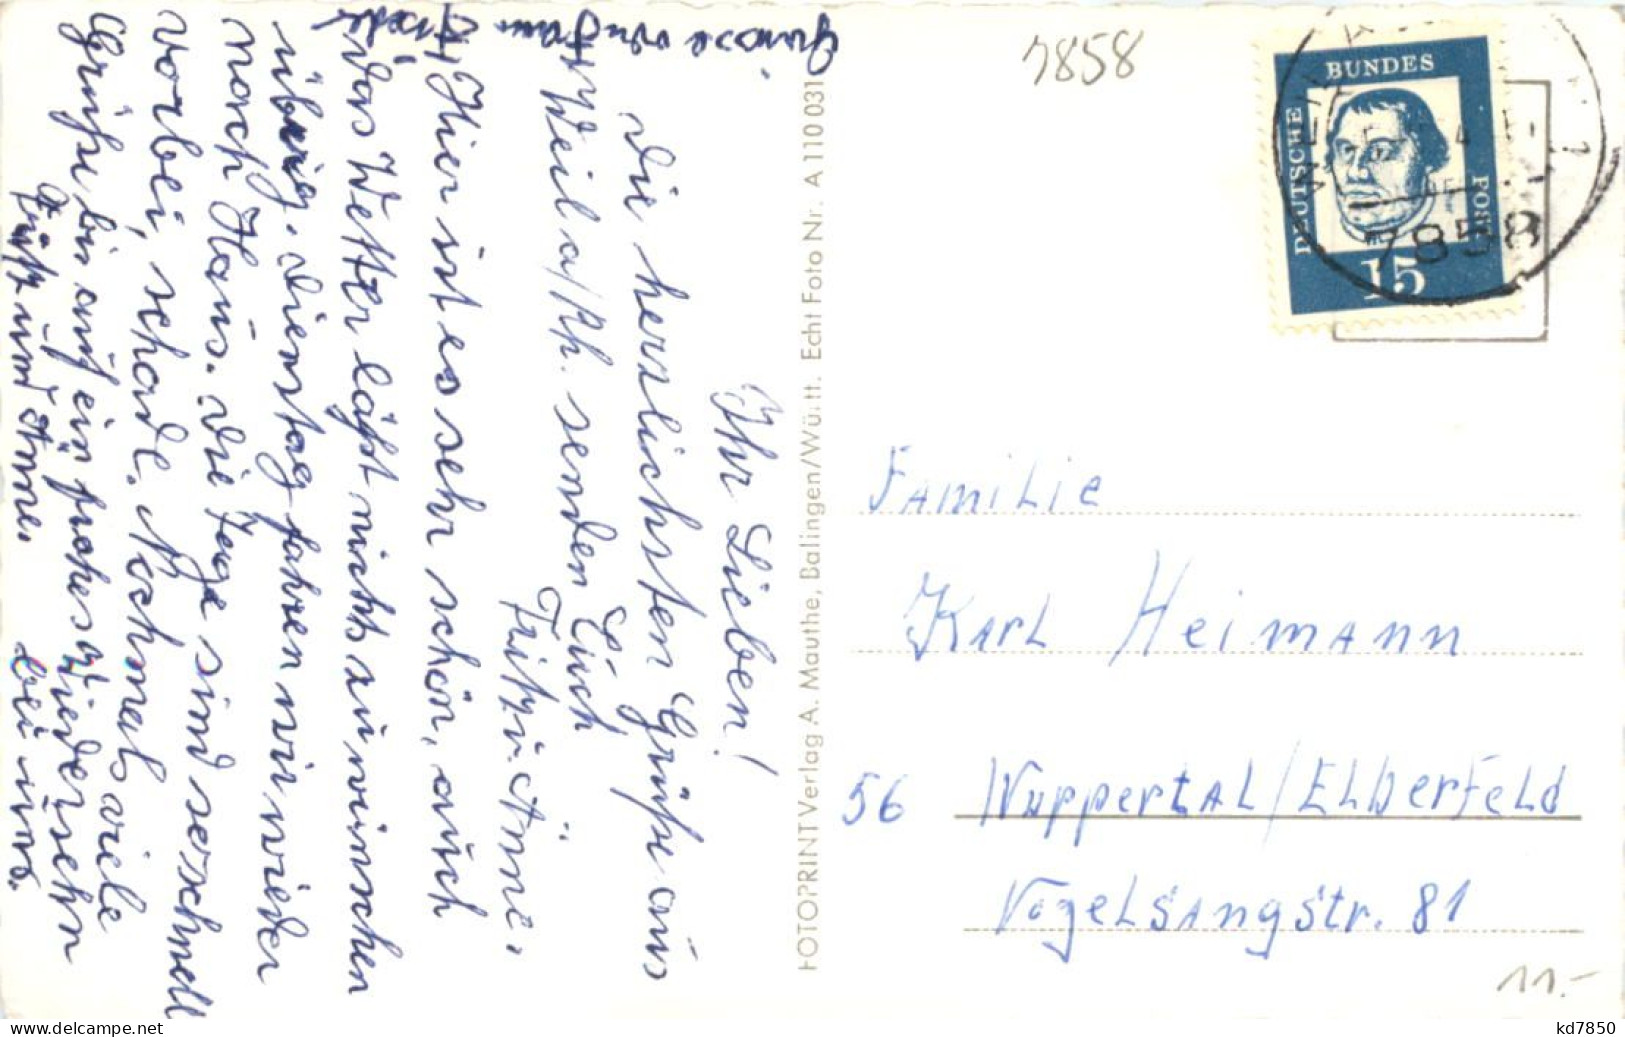 Ihr Lieben!
Die herzlichsten Grüße aus
Weil a/Rh. senden Euch
Fritz u. Änne.
Hier ist es sehr schön, auch
das Wetter läßt nichts zu wünschen
übrig. Dienstag fahren wir wieder
nach Haus. Die Tage sind so schnell
vorbei, schade. Nochmals viele
Grüße bis auf ein frohes Wiedersehn
bei uns.
Fritz und Änne.
Grüsse von
7858
DEUTSCHE
BUNDES
POST
15
7858
FOTOPRINT Verlag A. Mauthe, Balingen/Württ. Echt Foto Nr. A 110 031
Familie
Karl Heimann
56 Wuppertal/Elberfeld
Vogelsangstr. 81
11.-
www.delcampe.net
kd7850